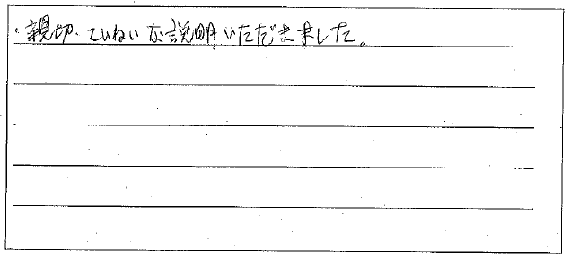 ・親切、ていねいな説明いただきました。